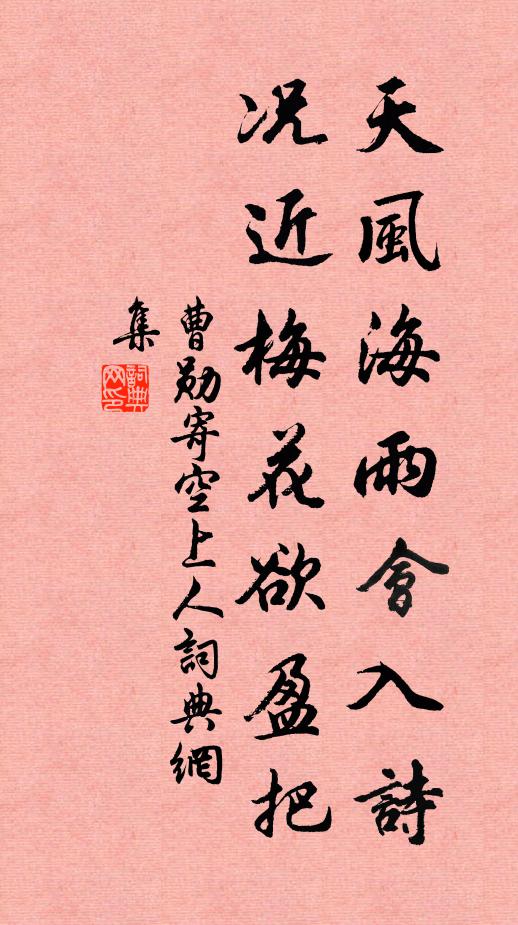 天風海雨會入詩
况近梅花欲盈把
曹勛寄空上人詞典網
集
詞典
网印